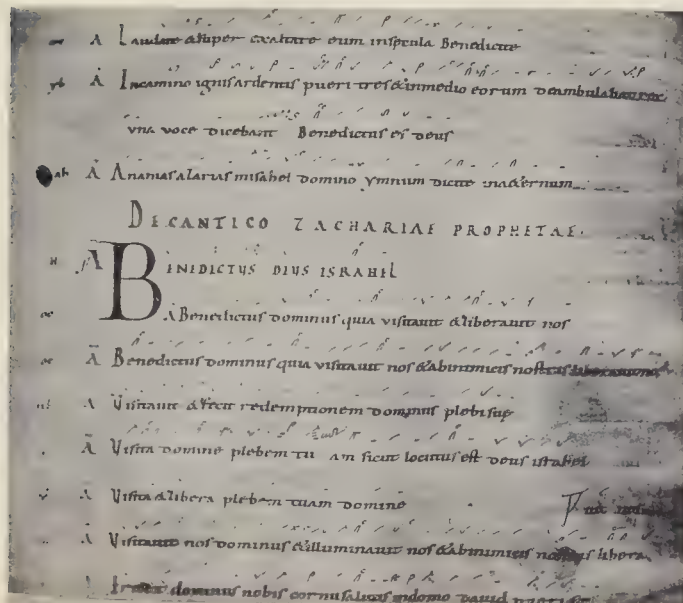 A Laudate & super exaltate eum insecula Benedicite
A Incamino ignis ardentis pueri tres & inmedio eorum deambulabant
vna voce dicebant Benedictus es deus
A Ananias azarias misahel domino ymnum dicite in&ernum
DE CANTICO ZACHARIAE PROPHETAE
A BENIDICTUS DEUS ISRAHEL
A Benedictus dominus quia visitauit & liberauit nos
A Benedictus dominus quia visitauit nos & abinimicis nostris
A Visitauit & fecit redemptionem dominus plebi sue
A Visita domine plebem tu am sicut locutus est deus israhel
A Visita & libera plebem tuam domine
A Visitauit nos dominus & illuminauit nos & abinimicis nostris libera
dominus nobis cornu salutis indomo dauid